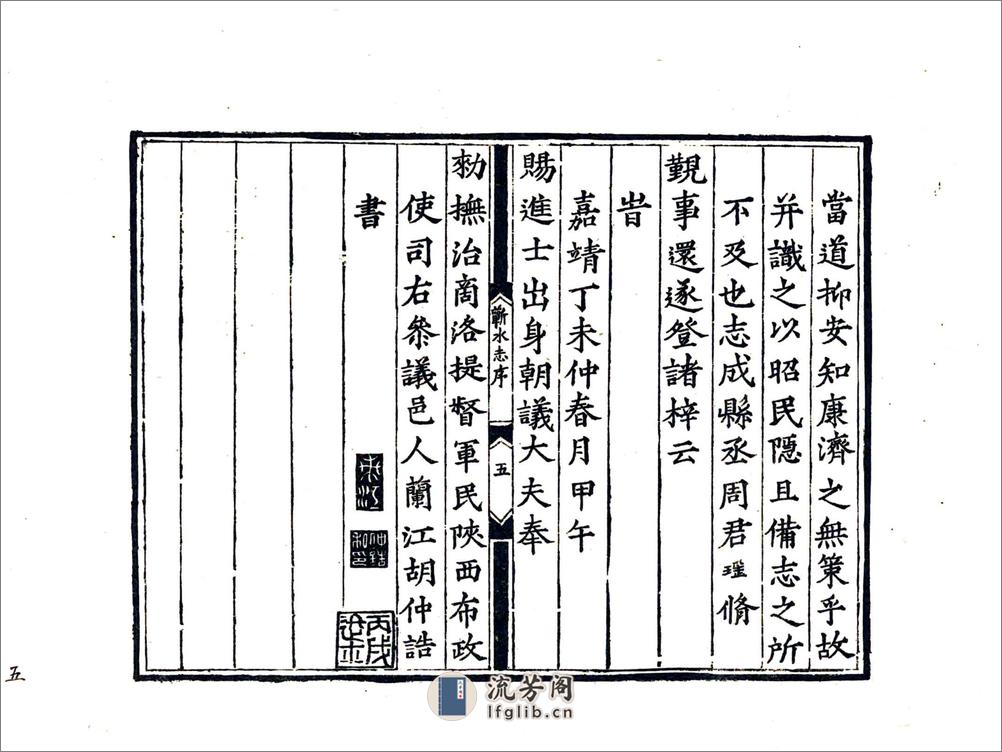 當道抑安知康濟之無策乎故
并識之以昭民隱且備志之所
不及也志成縣丞周君瑶脩
覲事還遂登諸梓云
旹
嘉靖丁未仲春月甲午
賜進士出身朝議大夫奉
蘄水志序
五
勑撫治商洛提督軍民陝西布政
使司右叅議邑人蘭江胡仲誥
書
五
流芳阁
lfglib.cn